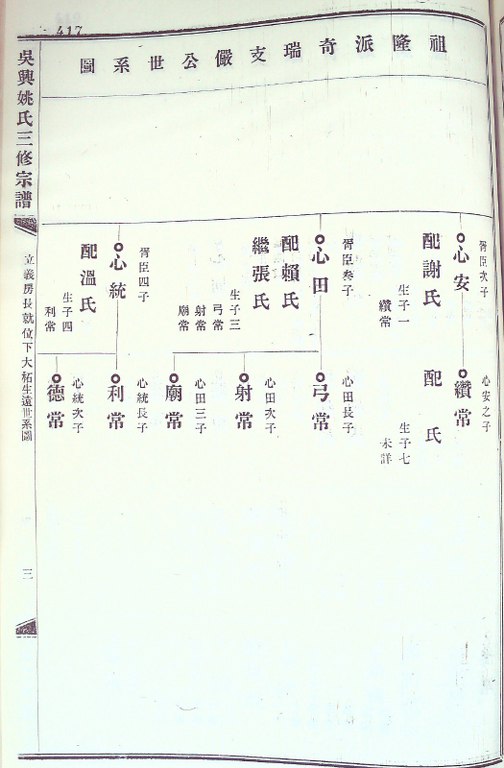 417
祖隆派奇瑞支儼公世系圖
胥臣次子
心安
配謝氏
生子一
纘常
胥臣叁子
心田
配賴氏
繼張氏
生子三
弓常
射常
廟常
胥臣四子
心統
配溫氏
生子四
利常
心安之子
纘常
配 氏
生子七
未詳
心田長子
弓常
心田次子
射常
心田三子
廟常
心統長子
利常
心統次子
德常
吳興姚氏三修宗譜
立義房長就位下大柘生遠世系圖
三